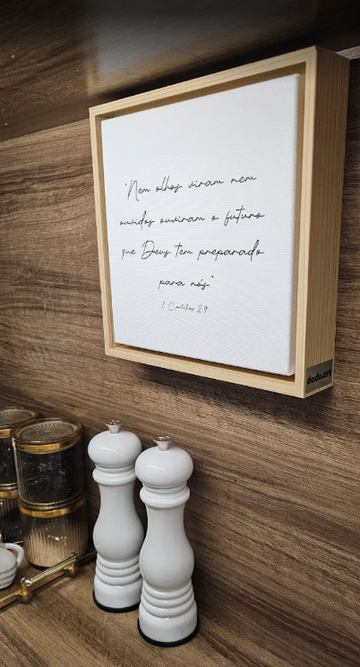 "Nem olhos viram nem
ouvidos ouviram o futuro
que Deus tem preparado
para nós"
1 Coríntios 2:9
dadu.art